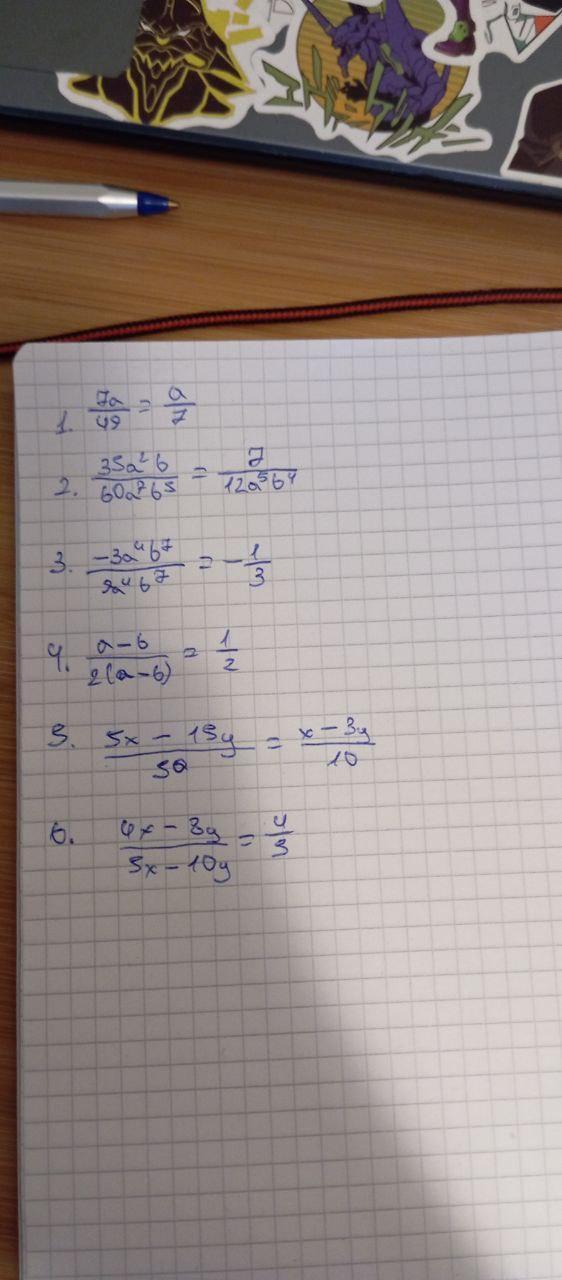 1. 7a/49 = a/7
2. 35a²b/60a⁷b⁵ = 7/12a⁵b⁴
3. -3a⁴b⁷/9a⁴b⁷ = -1/3
4. a-b/2(a-b) = 1/2
5. 5x - 15y/50 = x-3y/10
6. 4x - 8y/5x-10y = 4/5